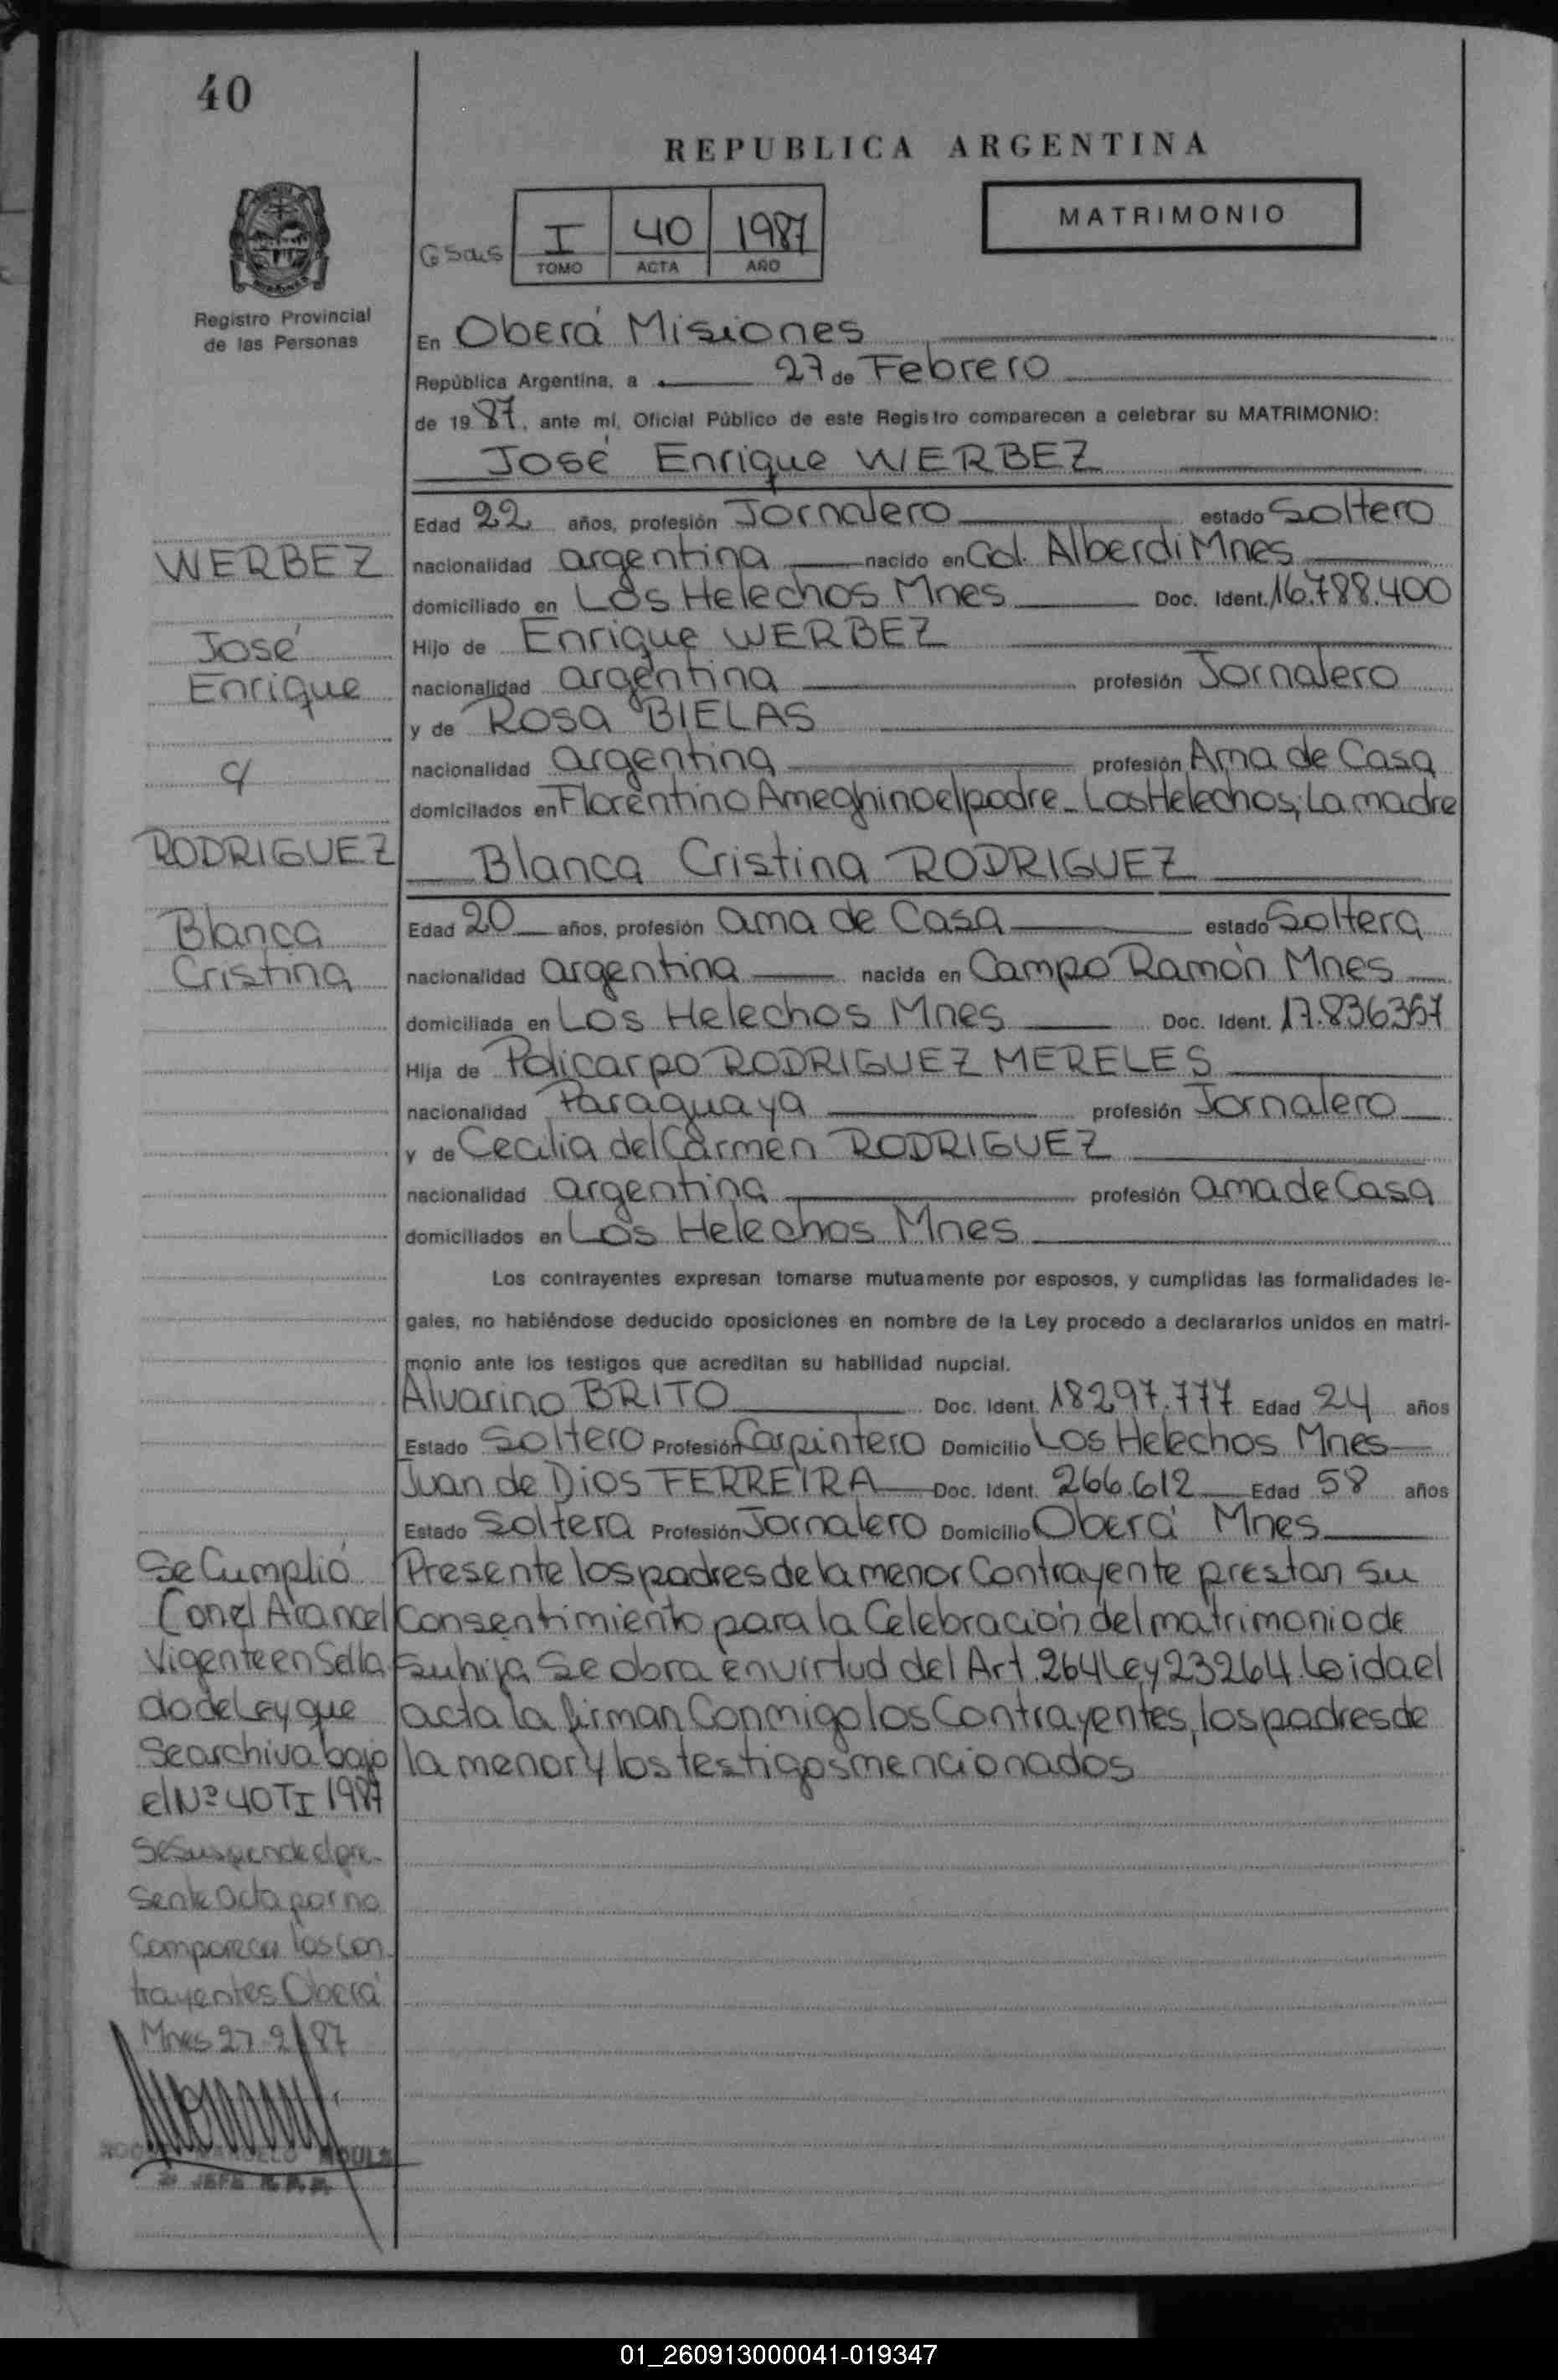 40
REPUBLICA ARGENTINA
I 40 1987
TOMO ACTA AÑO
MATRIMONIO
Registro Provincial
de las Personas
En Oberá Misiones
República Argentina, a 27 de Febrero
de 1987, ante mí, Oficial Público de este Registro comparecen a celebrar su MATRIMONIO:
José Enrique WERBEZ
Edad 22 años, profesión Jornalero estado Soltero
nacionalidad argentina nacido en Col. Alberdi Mnes
domiciliado en Los Helechos Mnes Doc. Ident. 16.788.400
Hijo de Enrique WERBEZ
nacionalidad argentina profesión Jornalero
y de Rosa BIELAS
nacionalidad argentina profesión Ama de Casa
domiciliados en Florentino Ameghino el padre - Los Helechos; La madre
Blanca Cristina RODRIGUEZ
Edad 20 años, profesión ama de Casa estado Soltera
nacionalidad argentina nacida en Campo Ramón Mnes
domiciliada en Los Helechos Mnes Doc. Ident. 17.836357
Hija de Policarpo RODRIGUEZ MERELES
nacionalidad Paraguaya profesión Jornalero
y de Cecilia del Carmen RODRIGUEZ
nacionalidad argentina profesión ama de Casa
domiciliados en Los Helechos Mnes
Los contrayentes expresan tomarse mutuamente por esposos, y cumplidas las formalidades le-
gales, no habiéndose deducido oposiciones en nombre de la Ley procedo a declararlos unidos en matri-
monio ante los testigos que acreditan su habilidad nupcial.
Alvarino BRITO Doc. Ident. 18297.777 Edad 24 años
Estado Soltero Profesión Carpintero Domicilio Los Helechos Mnes
Juan de Dios FERREIRA Doc. Ident. 266.612 Edad 58 años
Estado Soltera Profesión Jornalero Domicilio Oberá Mnes
Presente los padres de la menor Contrayente prestan su
Consentimiento para la Celebración del matrimonio de
su hija Se obra en virtud del Art. 264 Ley 23264. Leida el
acta la firman Conmigo los Contrayentes, los padres de
la menor y los testigos mencionados
WERBEZ
José
Enrique
c/
RODRIGUEZ
Blanca
Cristina
Se Cumplió
Con el Arancel
Vigente en Sella
do de Ley que
Se archiva bajo
el Nº 40 TI 1987
Se Suspende el pre-
sente acta por no
Comparecer los con
trayentes Oberá
Mnes 27-2-87
JEFE R.P.P.
01_260913000041-019347